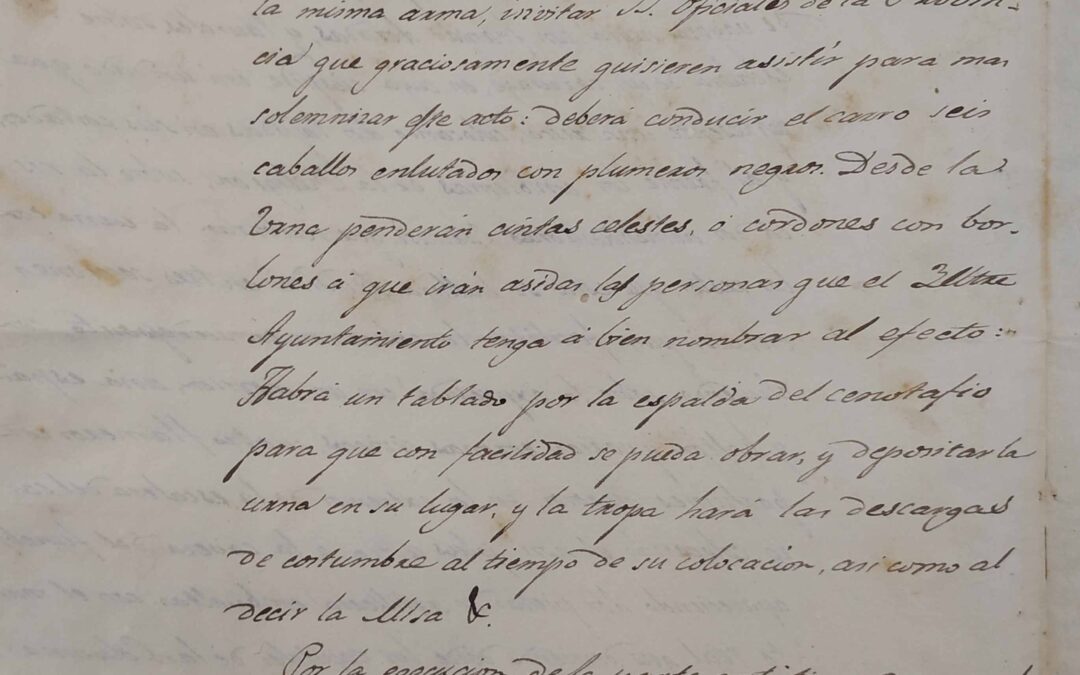 la misma arma, invitar SS. oficiales de la Provin-
cia que graciosamente quisieren asistir para mas
solemnizar este acto: deberá conducir el carro seis
caballos enlutados con plumeros negros. Desde la
Urna penderán cintas celestes, ó cordones con bor-
lones á que irán asidas las personas que el Iltre
Ayuntamiento tenga á bien nombrar al efecto:
Habrá un tablado por la espalda del cenotafio
para que con facilidad se pueda obrar, y depositar la
urna en su lugar, y la tropa hará las descargas
de costumbre al tiempo de su colocacion, asi como al
decir la Misa &.
Por la egecucion de la